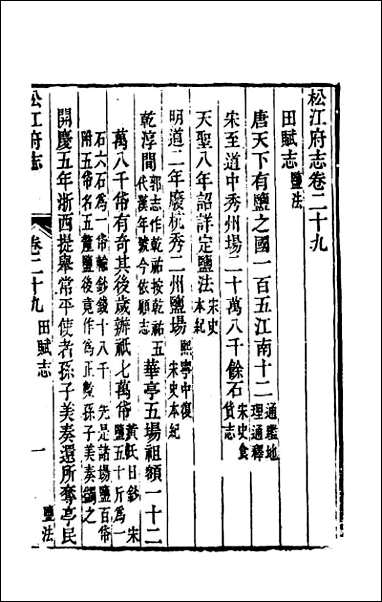 松江府志卷二十九
田賦志 鹽法
唐天下有鹽之國一百五江南十二 通鑑地理通釋
宋至道中秀州場二十萬八千餘石 宋史食貨志
天聖八年詔詳定鹽法 宋史本紀
明道二年廢杭秀二州鹽場 熙寧中復 宋史本紀
乾淳間 郭志作乾祐按乾祐五代漢年號今依顧志 華亭五場祖額一十二
萬八千帒有奇其後歲辦祇七萬帒 黃氏日鈔 宋鹽五十斤爲一
石六石爲一帒輸鈔錢十八千 先是諸場鹽百帒
附五帒名五釐鹽後竟作爲正數孫子美奏蠲之
開慶五年浙西提舉常平使者孫子美奏還所奪亭民
松江府志
卷二十九 田賦志
一
鹽法